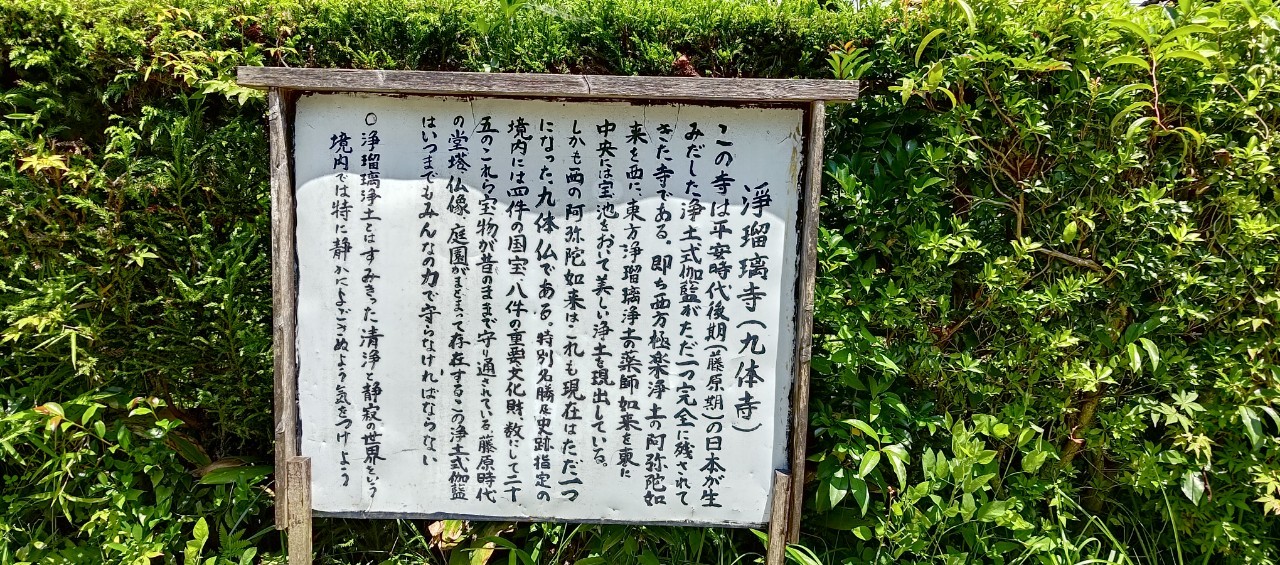 浄瑠璃寺(九体寺)
この寺は平安時代後期(藤原期)の日本が生
みだした浄土式伽藍がただ一つ完全に残されて
きた寺である。即ち西方極楽浄土の阿弥陀如
来を西に、東方浄瑠璃浄土の薬師如来を東に
中央には宝池をおいて美しい浄土を現出している。
しかも西の阿弥陀如来はこれも現在はただ一つ
になった、九体仏である。特別名勝及史跡指定の
境内には四件の国宝、八件の重要文化財、数にして二十
五のこれら宝物が昔のままで守り通されている藤原時代
の堂塔、仏像、庭園がまとまって存在するこの浄土式伽藍
はいつまでもみんなの力で守らなければならない
○浄瑠璃浄土とはすみきった清浄と静寂の世界をいう
境内では特に静かによごさぬよう気をつけよう